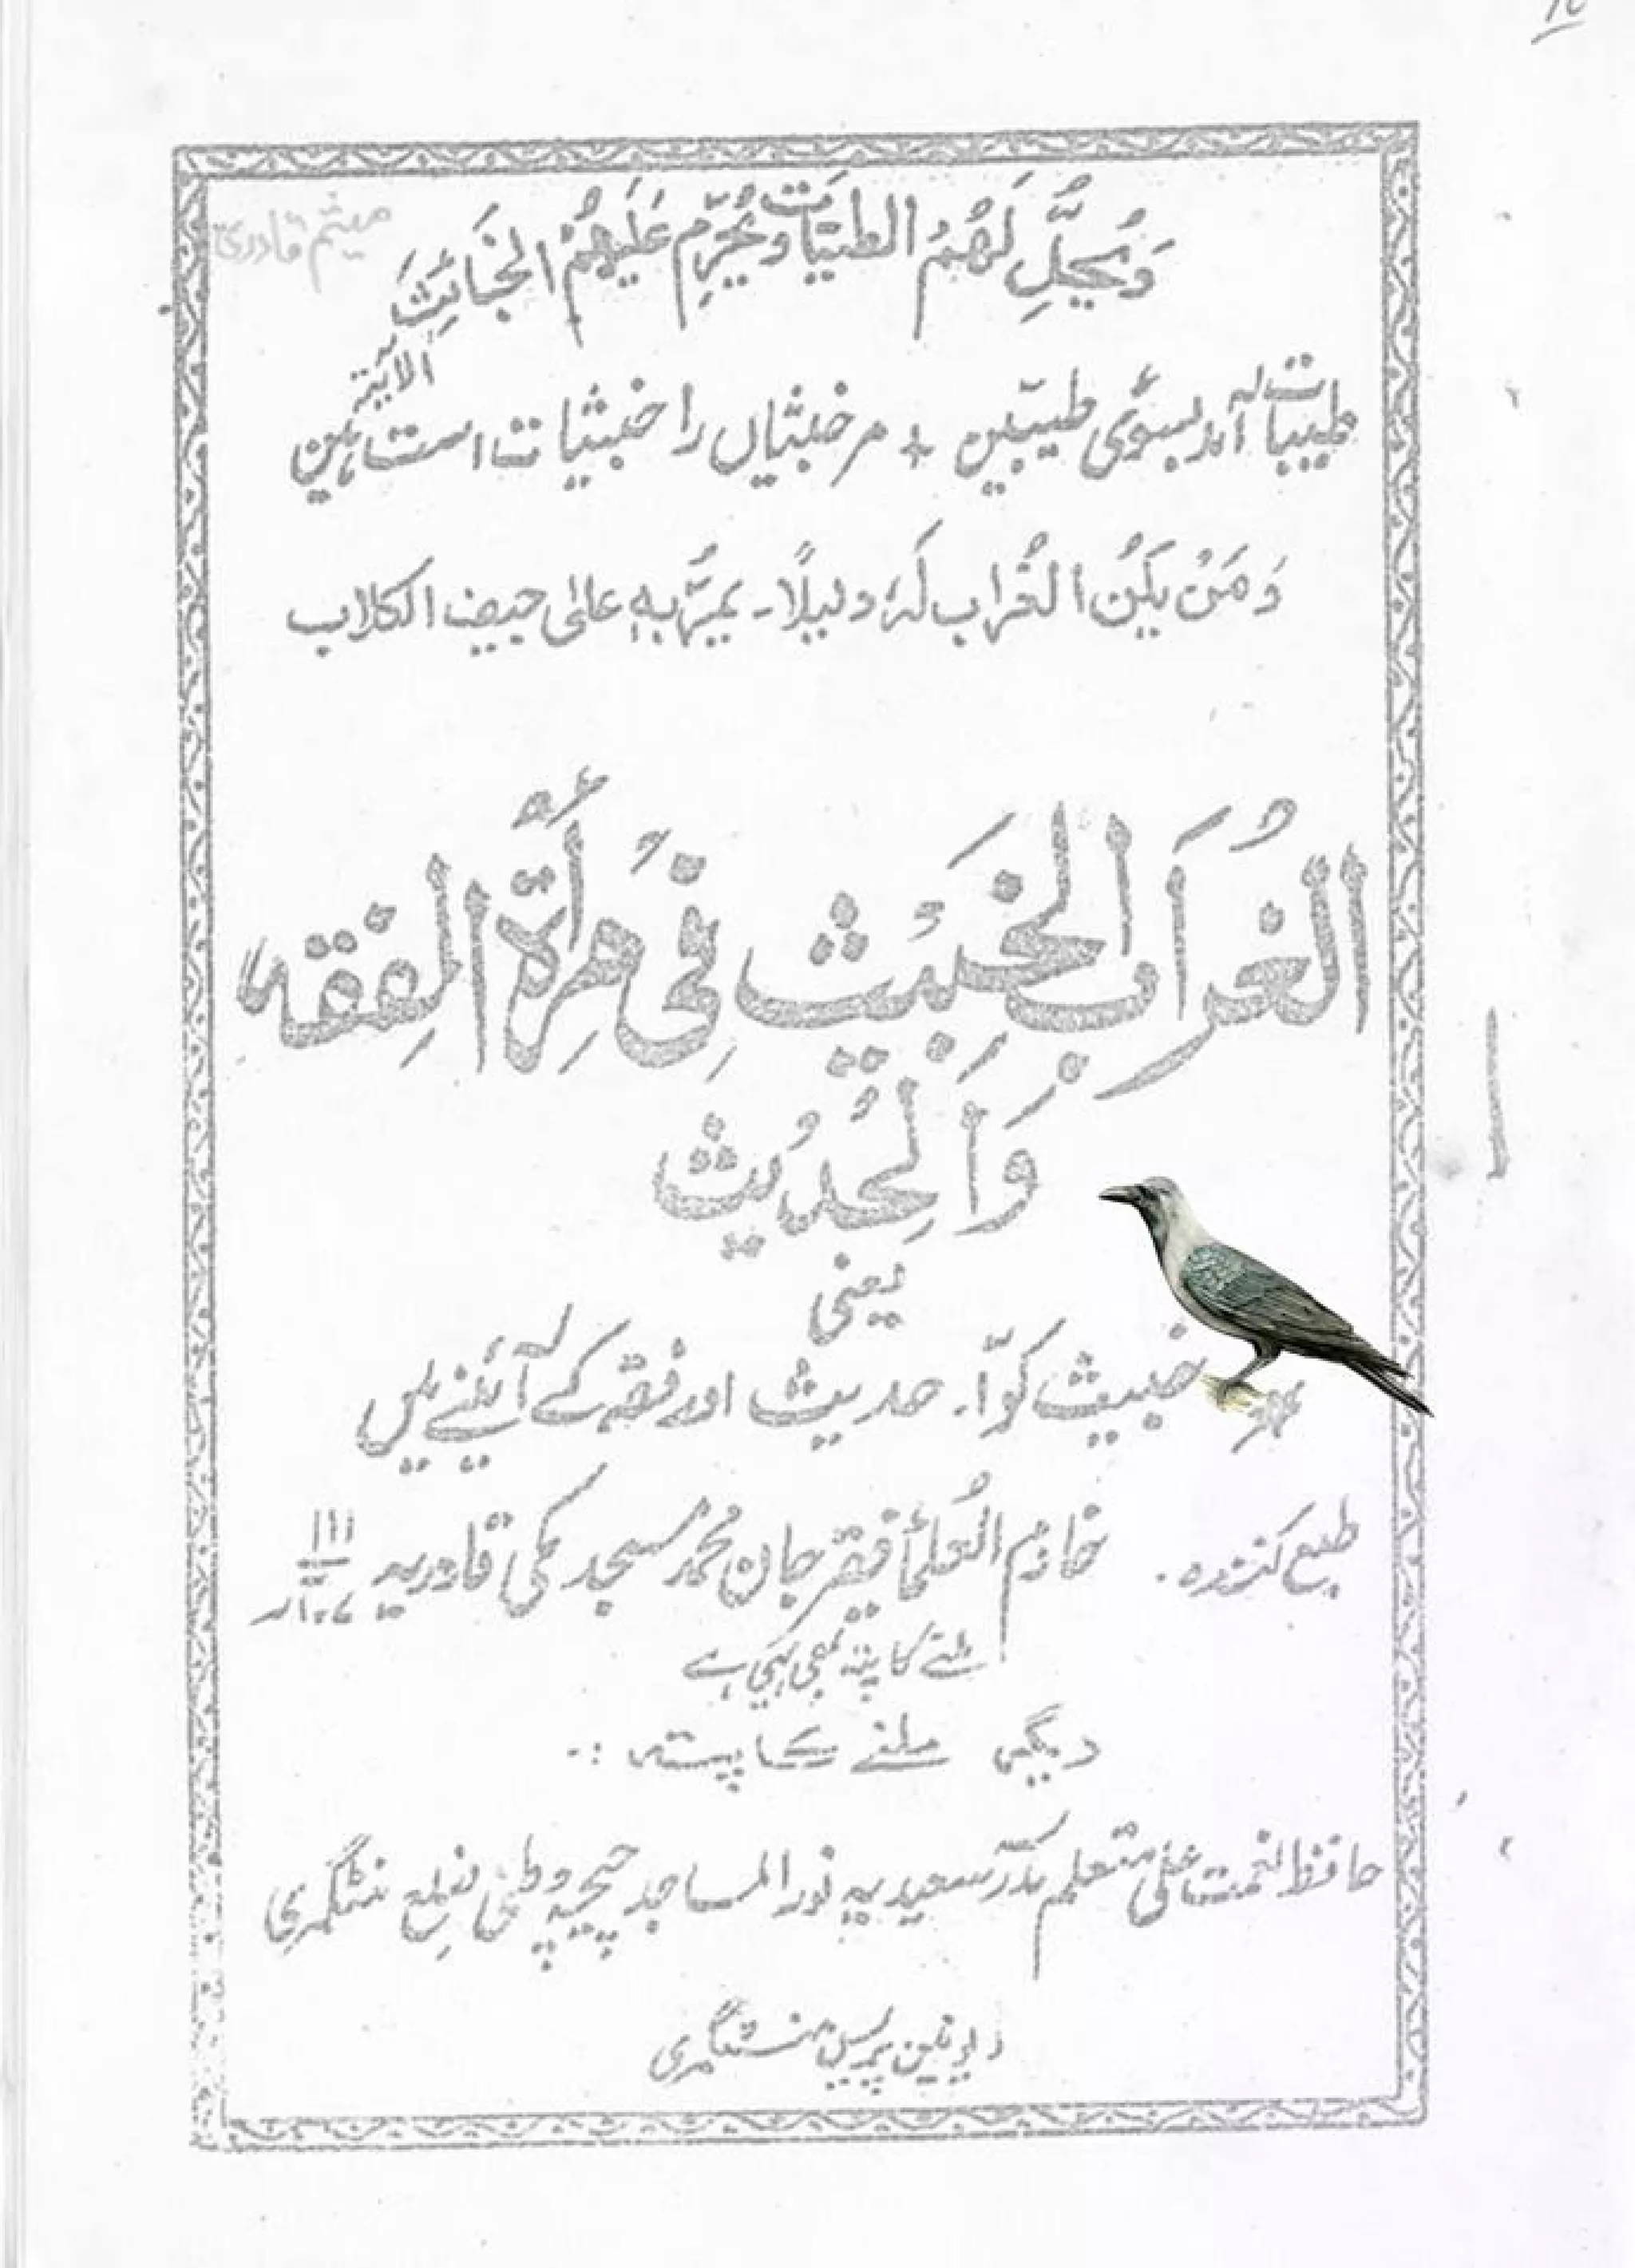 میثم قادری
وَيُحِلُّ لَهُمُ الطَّيِّبَاتِ وَيُحَرِّمُ عَلَيْهِمُ الْخَبَائِثَ
الاٰیة
طیبات آمد بسوئی طیبین + مر خبیثاں را خبیثات است ہیں
وَمَنْ یَکُنِ الغُراب لَہٗ دلیلًا۔ یمرُّ بِہٖ علیٰ جیف الکلاب
الغُرَابُ الخَبِیْث فِیْ مِرْأَةُ الفِقْه
وَالْحَدِیْث
یعنی
خبیث کوّا۔ حدیث اور فقہ کے آئینے میں
طبع کنندہ۔ خادم العلمأ فقیر جان محمد مسجد مکی قادریہ
ملنے کا پتہ بھی یہی ہے
دیگر ملنے کا پتہ :۔
حافظ نعمت علی متعلم مدرسہ سعیدیہ نور المساجد چیچہ وطنی ضلع منٹگمری
یونین پریس منٹگمری